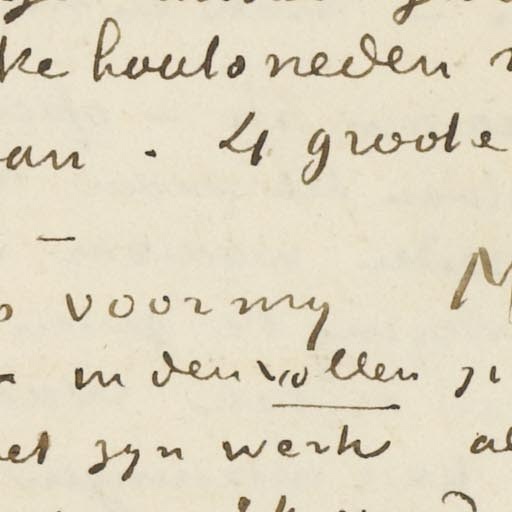 ke houtsneden
an . 4 groote
—
voor my M
in den vollen zi
et zyn werk al